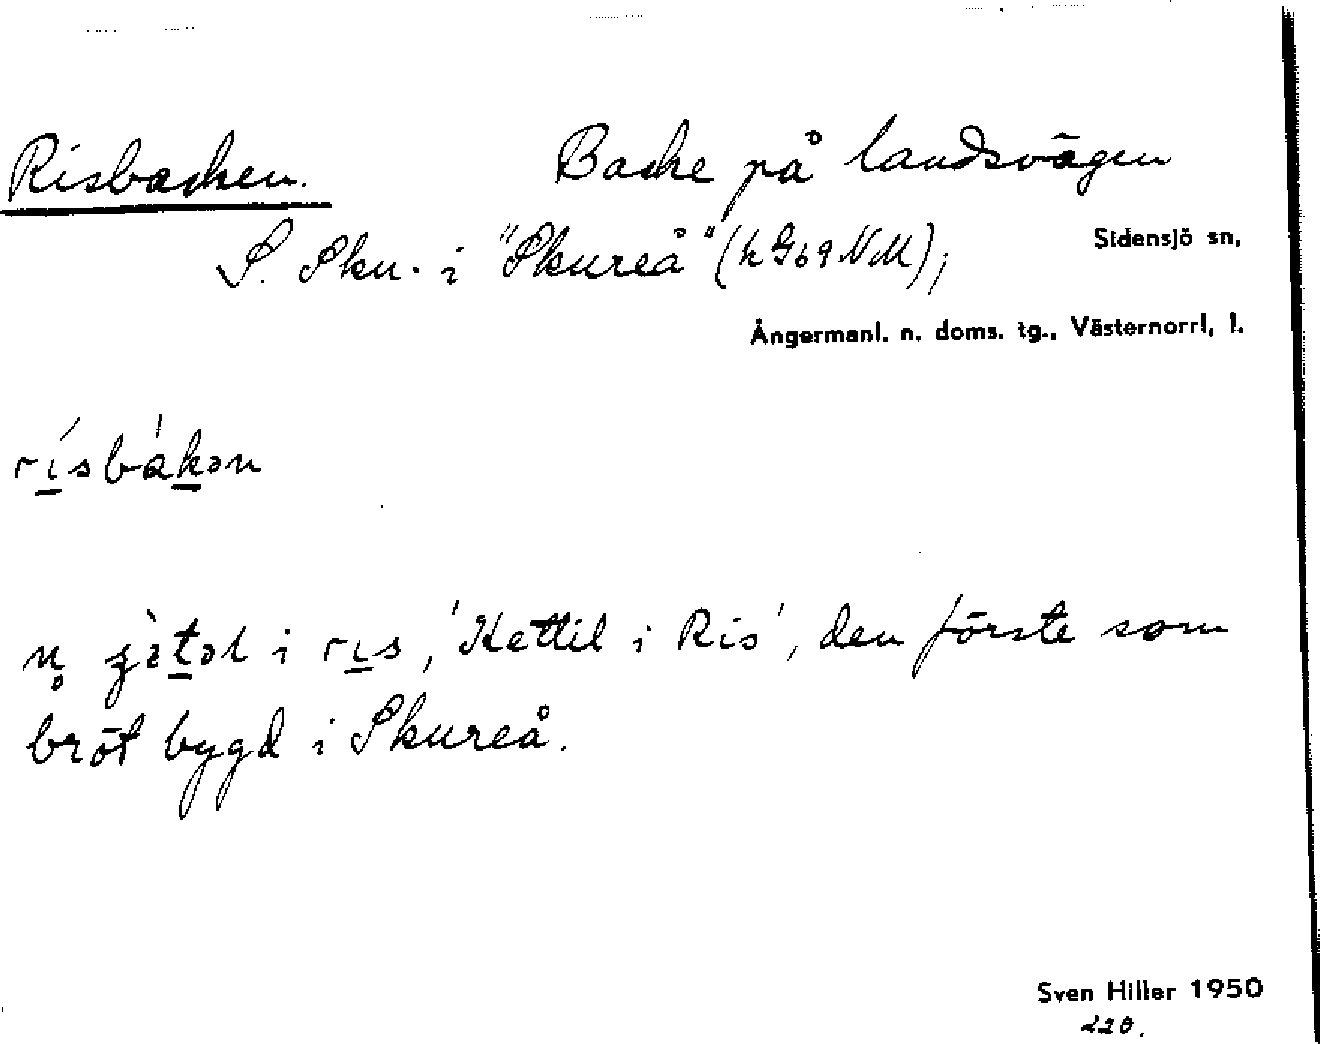 Risbacken. Backe på landsvägen
S. Sku. i "Skureå" (h G69 NM);
Sidensjö sn,
Ångermanl. n. doms. tg., Västernorrl, l.
i ris, 'Kettil i Ris', den förste som
bröt bygd i Skureå.
Sven Hiller 1950
220.